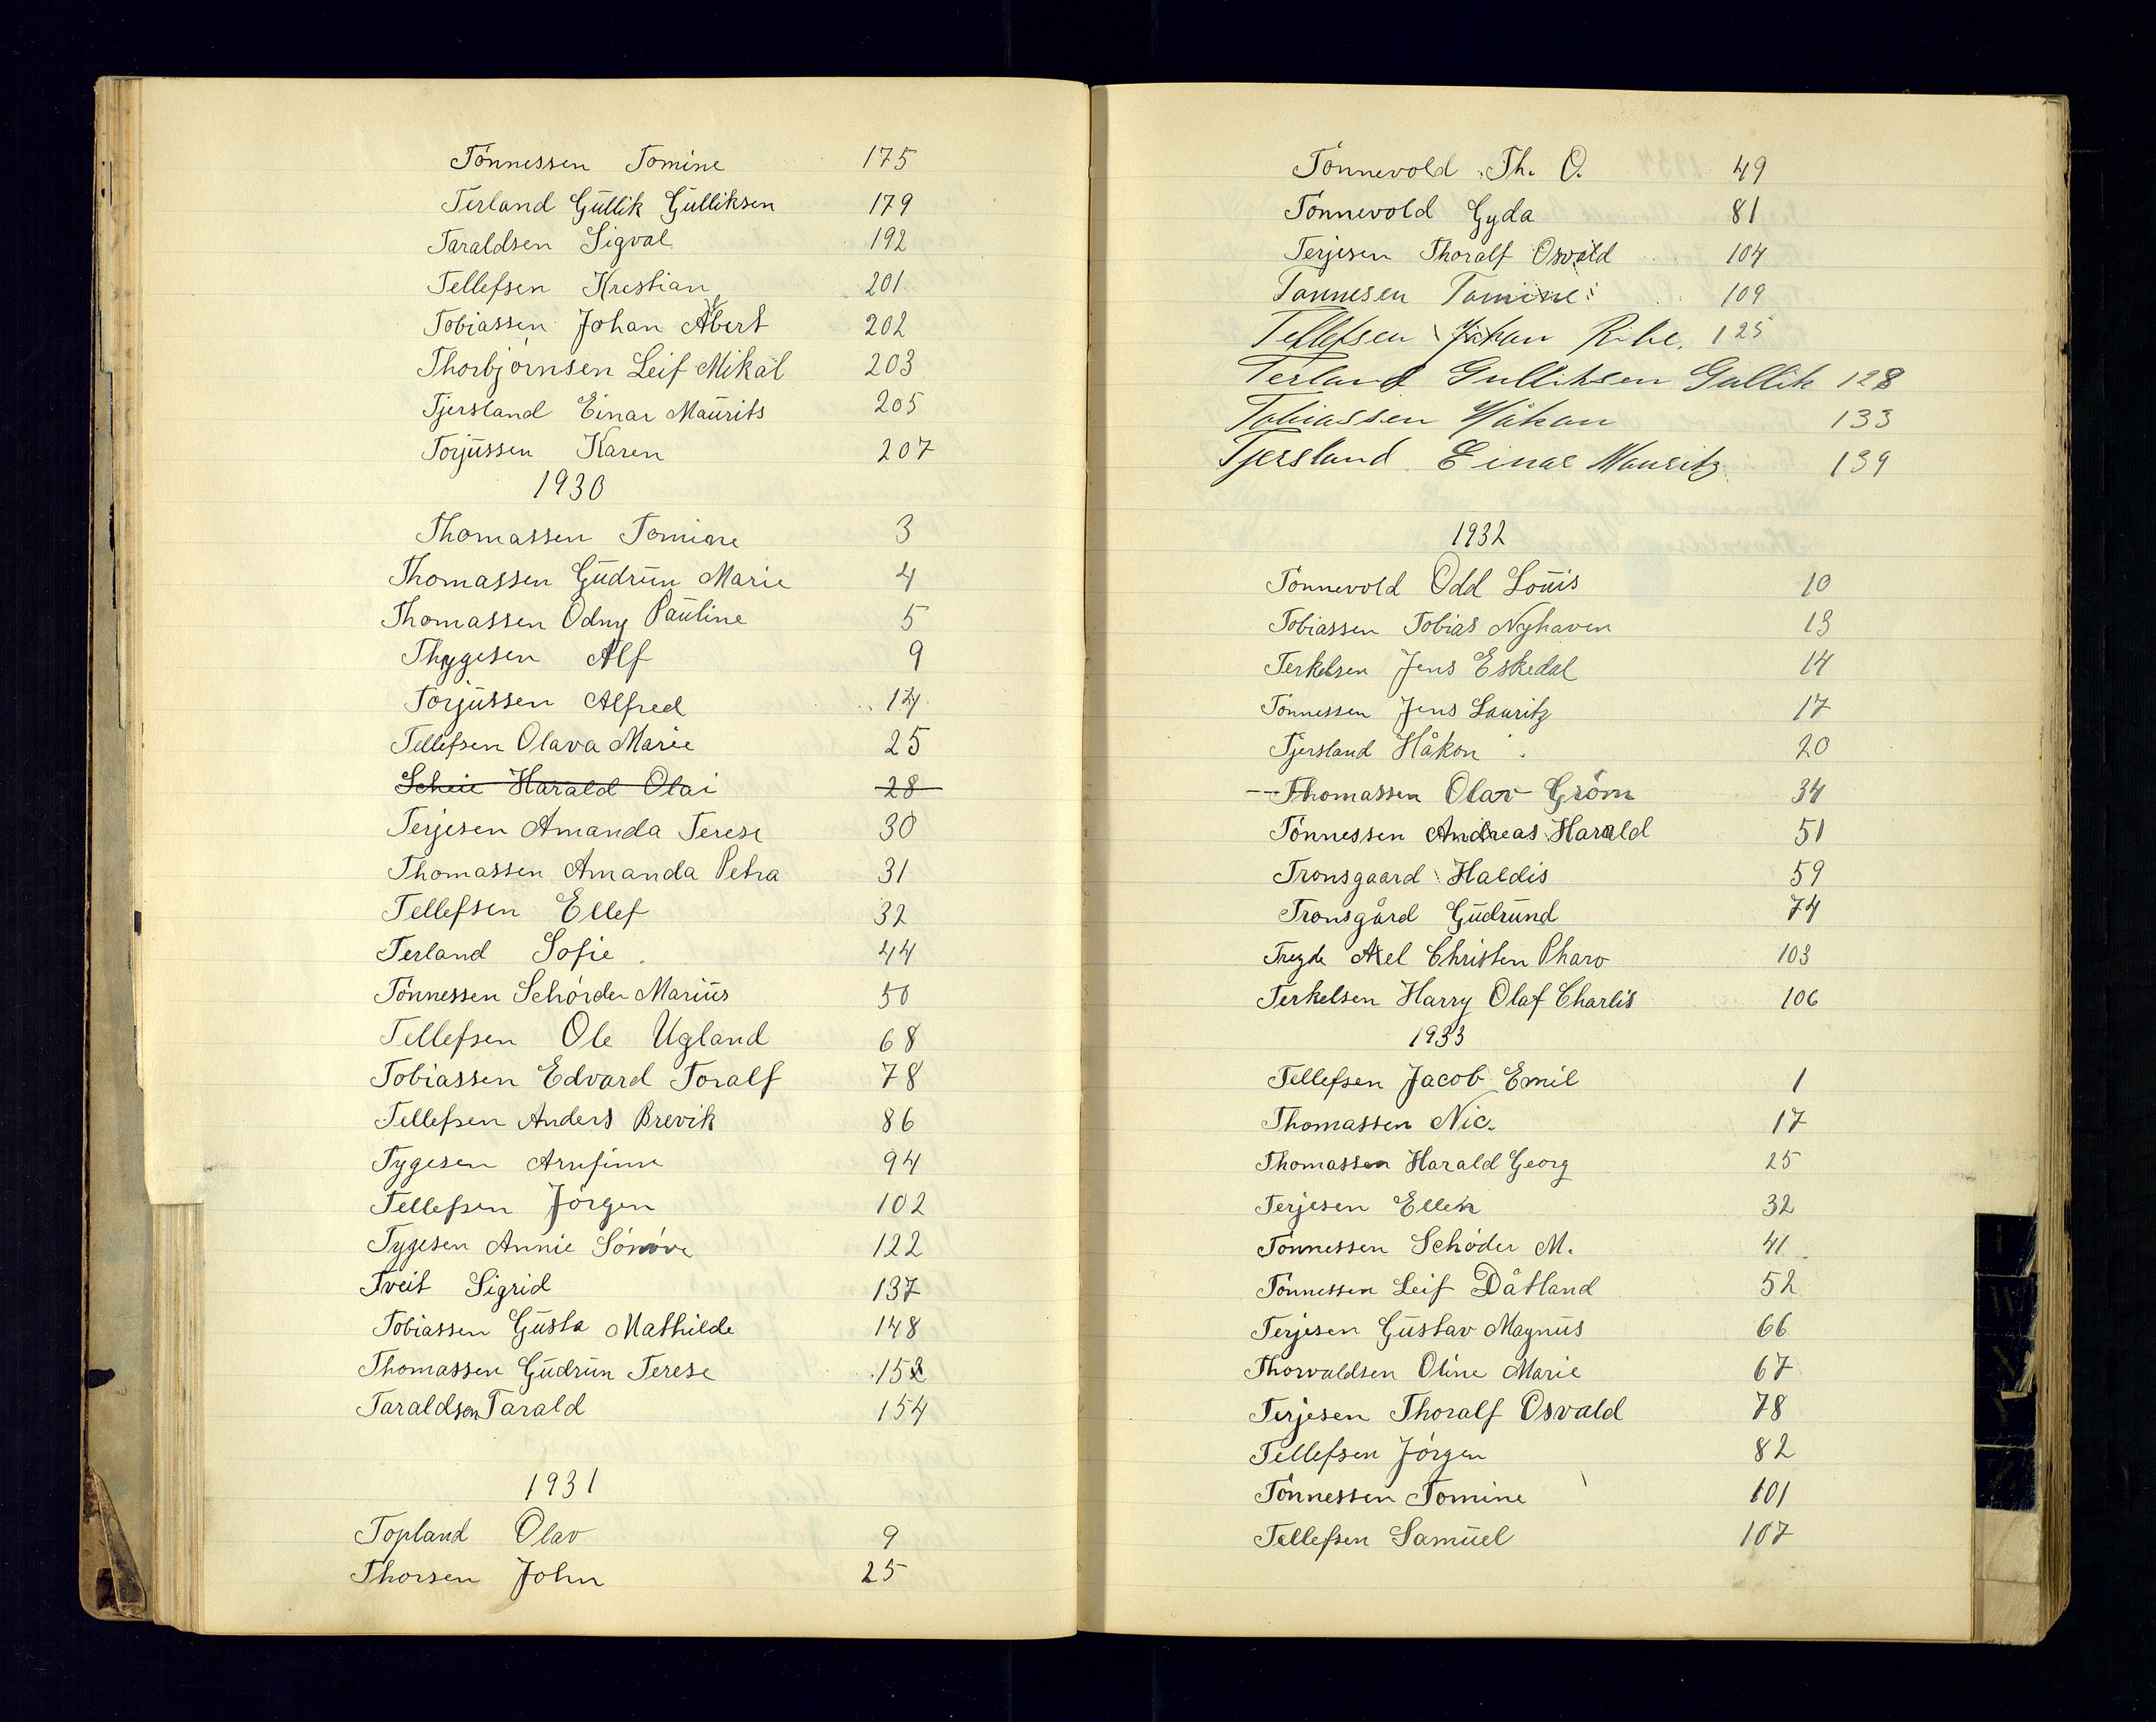 Tönnessen Tomine 175
Terland Güllik Gülliksen 179
Taraldsen Sigval 192
Tellefsen Krestian 201
Tobiassen Johan Albert 202
Thorbjörnsen Leif Mikal 203
Tjersland Einar Maürits 205
Torjüssen Karen 207
1930
Thomassen Tomine 3
Thomassen Güdrün Marie 4
Thomassen Odny Paüline 5
Thygesen Alf 9
Torjüssen Alfred 14
Tellefsen Olava Marie 25
Scheie Harald Olai 28
Terjesen Amanda Terese 30
Thomassen Amanda Petra 31
Tellefsen Ellef 32
Terland Sofie 44
Tönnessen Schörder Mariüs 50
Tellefsen Ole Ugland 68
Tobiassen Edvard Toralf 78
Tellefsen Anders Brevik 86
Tygesen Arnfinn 94
Tellefsen Jörgen 102
Tygesen Annie Sönöve 122
Tveit Sigrid 137
Tobiassen Güsta Mathilde 148
Thomassen Güdrün Terese 152
Taraldsen Tarald 154
1931
Topland Olav 9
Thorsen John 25
Tönnevold Th. O. 49
Tönnevold Gyda 81
Terjesen Thoralf Osvald 104
Tønnesen Tomine 109
Tellefsen Johan Ribe. 125
Terland Gulliksen Gullik 128
Tobiassen Håkon 133
Tjersland Einar Mauritz 139
1932
Tönnevold Odd Loüis 10
Tobiassen Tobias Nyhaven 13
Terkelsen Jens Eskedal 14
Tönnessen Jens Lauritz 17
Tjersland Håkon 20
Thomassen Olav Gröm 34
Tönnessen Andreas Harald 51
Tronsgaard Haldis 59
Tronsgård Güdründ 74
Tregde Axel Christen Pharo 103
Terkelsen Harry Olaf Charlis 106
1933
Tellefsen Jacob Emil 1
Thomassen Nic. 17
Thomassen Harald Georg 25
Terjesen Ellen 32
Tönnessen Schöder M. 41
Tönnessen Leif Dåtland 52
Terjesen Güstav Magnüs 66
Thorvaldsen Oline Marie 67
Terjesen Thoralf Osvald 78
Tellefsen Jörgen 82
Tönnessen Tomine 101
Tellefsen Samüel 107